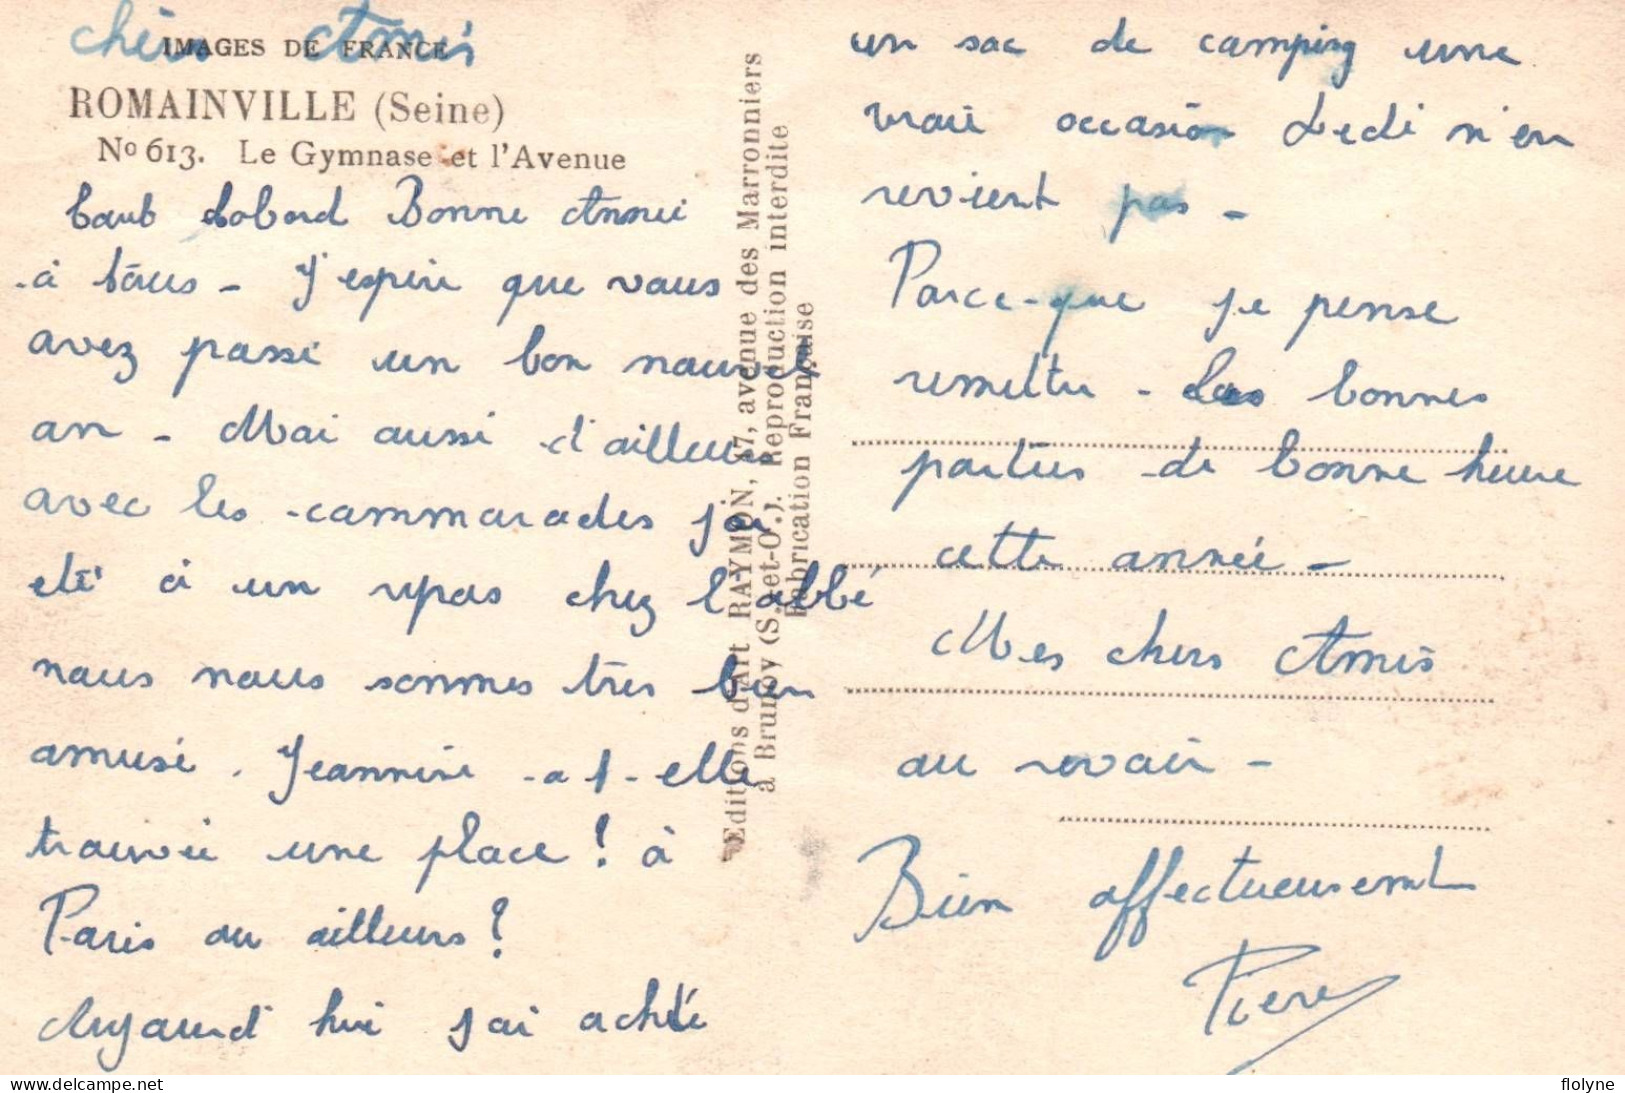 chers Amis
IMAGES DE FRANCE
ROMAINVILLE (Seine)
No 613. Le Gymnase et l'Avenue
Tout dabord Bonne Année
à tous - J'espère que vous
avez passé un bon nouvel
an - Moi aussi d'ailleurs
avec les cammarades j'ai
été à un repas chez l'abbé
nous nous sommes très bien
amusé. Jeannine -a-t-elle
trouvée une place! à
Paris ou ailleurs?
Aujourd'hui j'ai acheté
Editions d'Art RAYMON, 17, avenue des Marronniers
à Brunoy (S.-et-O.). Reproduction interdite
Fabrication Française
un sac de camping une
vraie occasion Dédi n'en
revient pas -
Parce-que je pense
remettre - des bonnes
parties de bonne heure
cette année -
Mes chers Amis
au revoir -
Bien affectueusement
Pierre
flolyne